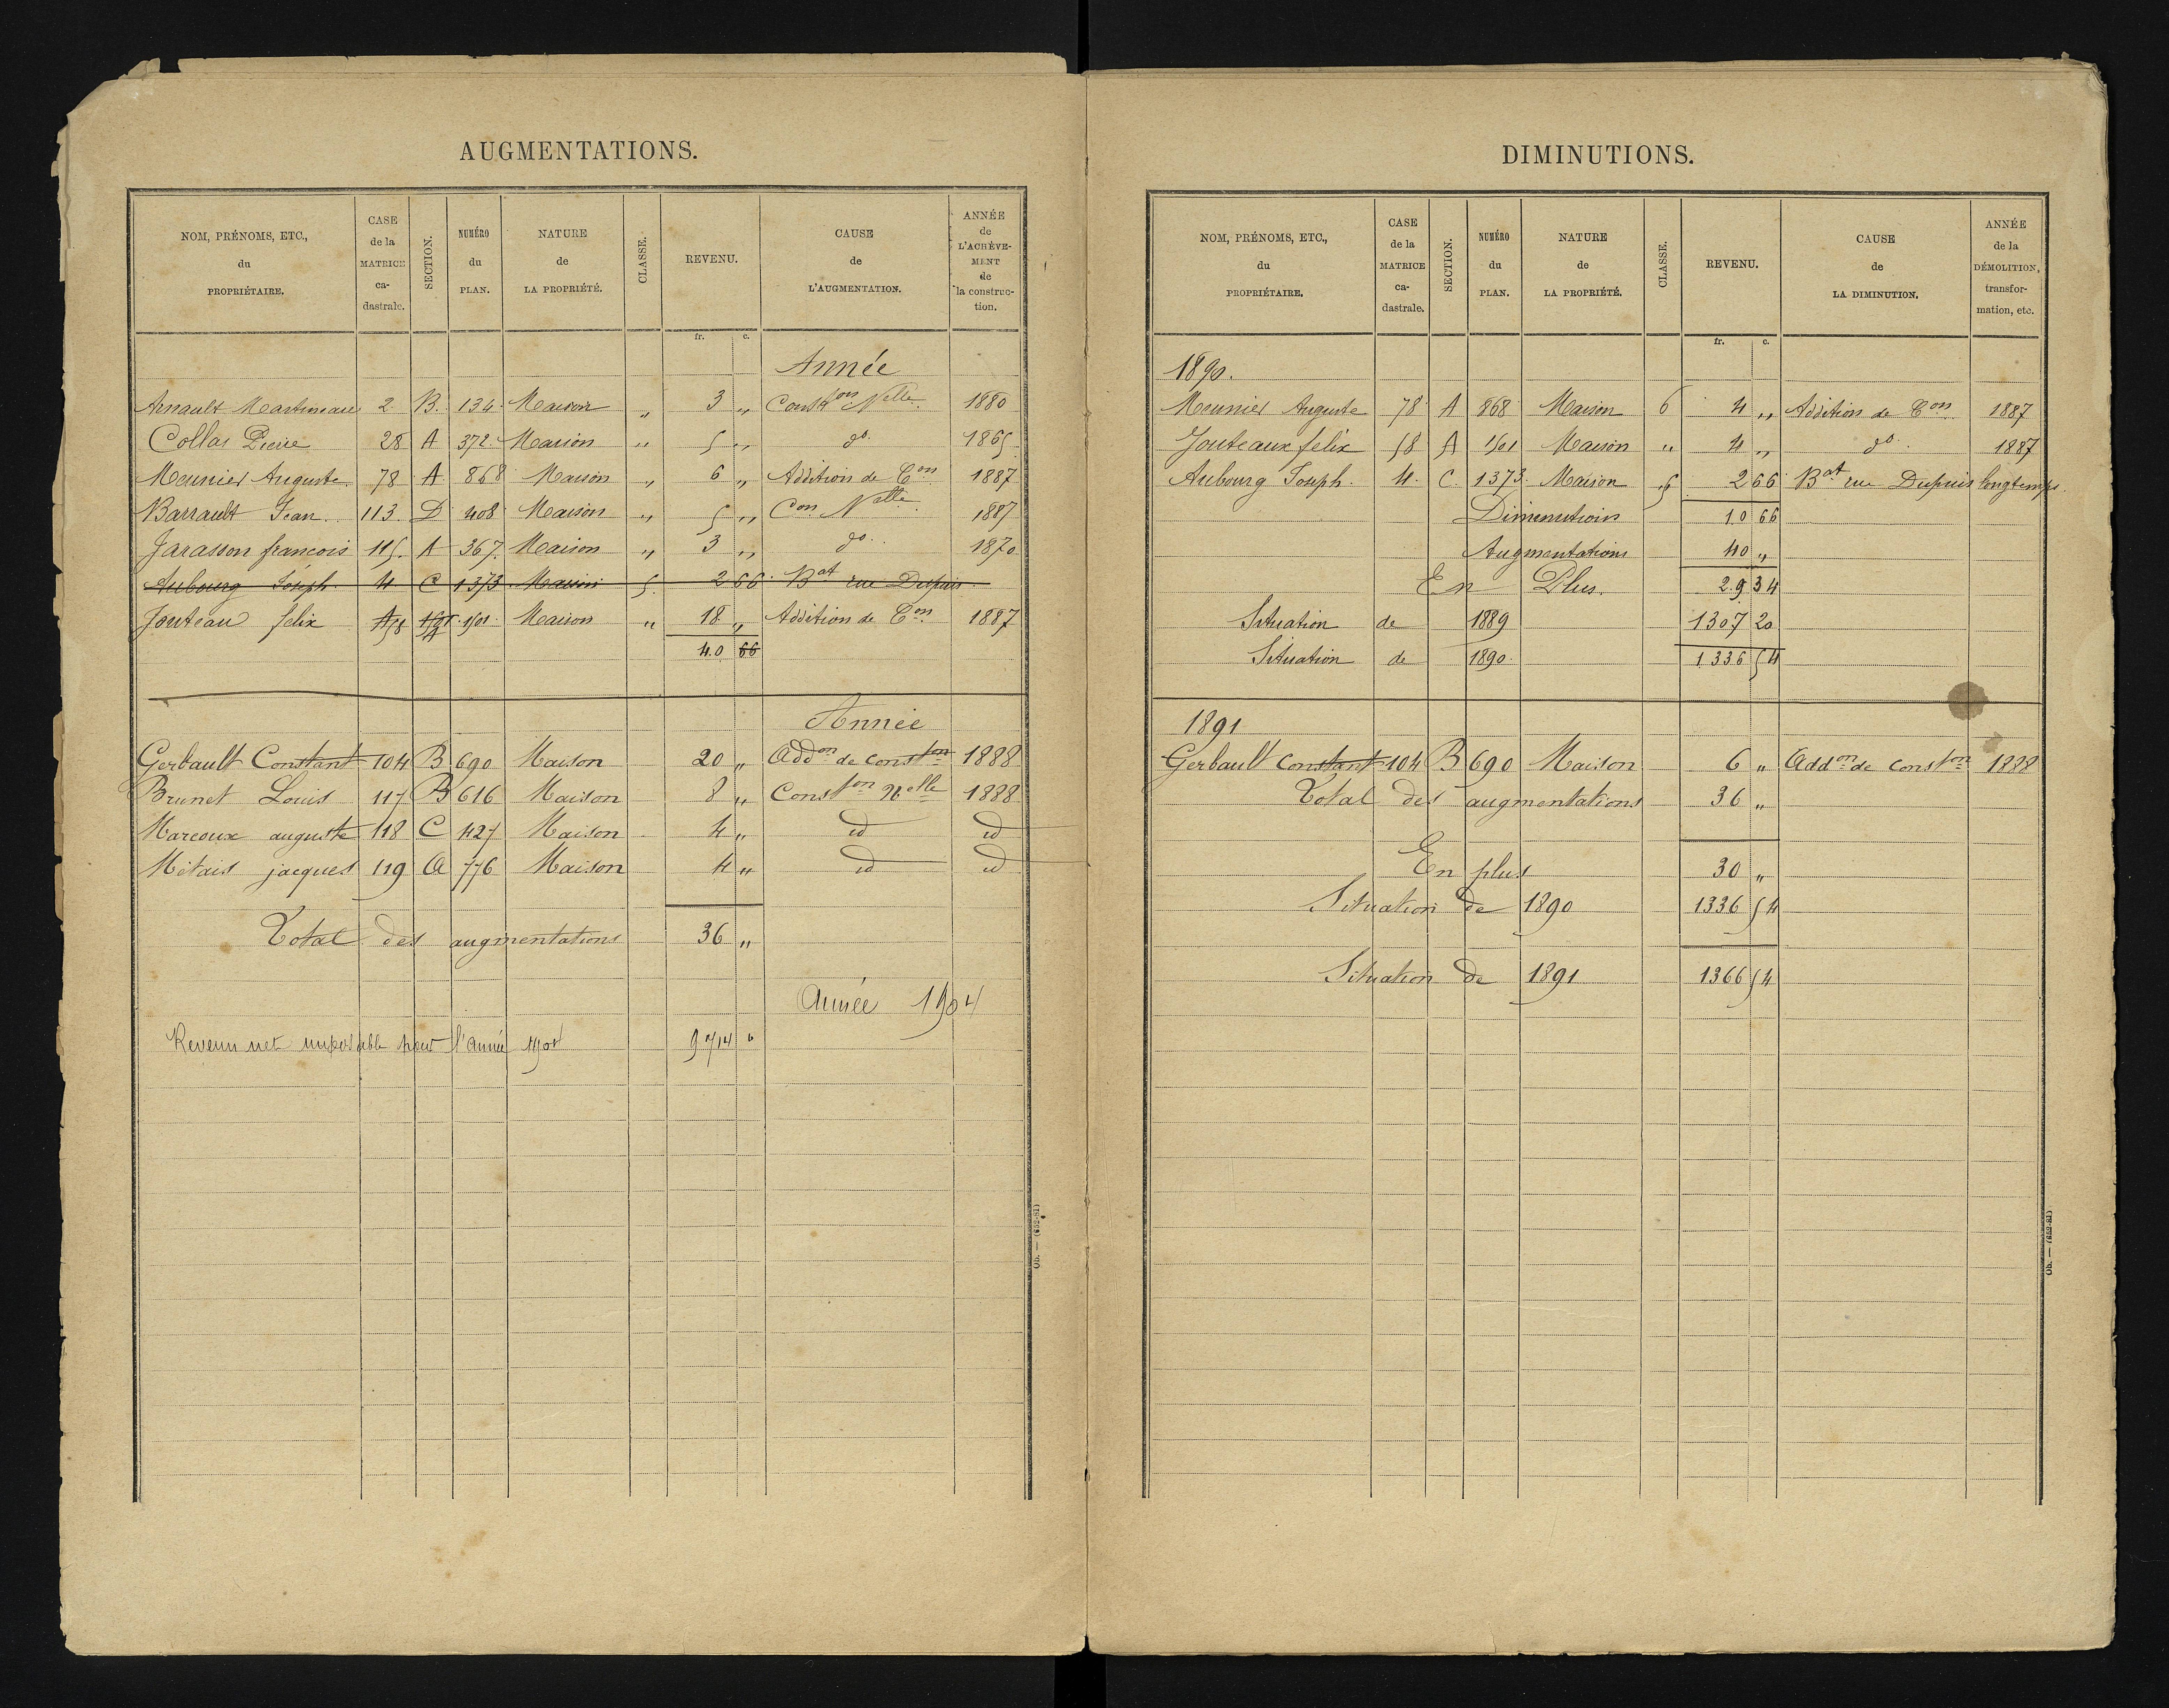 AUGMENTATIONS.
NOM, PRÉNOMS, ETC., du PROPRIÉTAIRE.
CASE de la MATRICE ca-dastrale.
SECTION.
NUMÉRO du PLAN.
NATURE de LA PROPRIÉTÉ.
CLASSE.
REVENU.
CAUSE de L'AUGMENTATION.
ANNÉE de L'ACHÈVE-MENT de la construc-tion.
fr. c.
Année
Arnault Martineau 2 B. 134 Maison " 3 " Constron Nelle 1880
Collas Pierre 28 A 372. Maison " 5 " do. 1865
Meunier Auguste. 78 A 868 Maison " 6 " Addition de Con 1887
Barrault Jean. 113. D 408 Maison " 5 " Con Nelle. 1887
Jarasson françois 115. A 367. Maison " 3 " do. 1870
Aubourg Joseph. 4 C 1373 Maison 5. 2 66. Bat rue Depuis
Jouteau felix 58 A 1501. Maison " 18 " Addition de Con 1887
40 66
Année
Gerbault Constant 104 B 690 Maison 20 " Addon de conston 1888
Brunet Louis 117 B 616 Maison 8 " Conston Nelle 1888
Marcoux auguste 118 C 427 Maison 4 " id id
Métais jacques 119 A 776 Maison 4 " id id
Total des augmentations 36 "
Année 1904
Revenu net imposable pour l'année 1904 9714 "
Ob. — (652-81)
DIMINUTIONS.
NOM, PRÉNOMS, ETC., du PROPRIÉTAIRE.
CASE de la MATRICE ca-dastrale.
SECTION.
NUMÉRO du PLAN.
NATURE de LA PROPRIÉTÉ.
CLASSE.
REVENU.
CAUSE de LA DIMINUTION.
ANNÉE de la DÉMOLITION, transfor-mation, etc.
fr. c.
1890.
Meunier Auguste 78 A 868 Maison 6 4 " Addition de Con 1887
Jouteaux felix 58 A 1501 Maison " 4 " do. 1887
Aubourg Joseph. 4. C. 1373. Maison 5 2 66 Bat rue Depuis longtemps.
Diminutions 10 66
Augmentations 40 "
En Plus. 29 34
Situation de 1889 1307 20
Situation de 1890. 1336 54
1891
Gerbault Constant 104 B 690 Maison 6 " Addon de conston 1888
Total des augmentations 36 "
En plus 30 "
Situation de 1890 1336 54
Situation de 1891 1366 54
Ob. — (652-81)